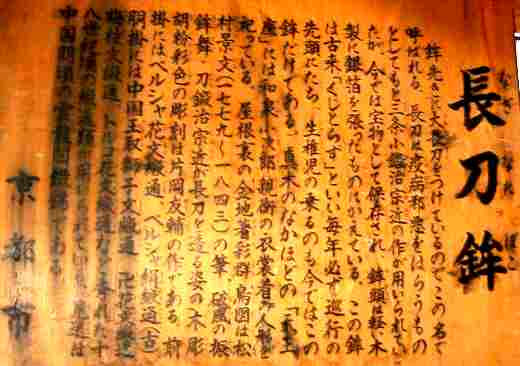 長刀鉾
なぎなたほこ
鉾先きに大長刀をつけているのでこの名で
呼ばれる。長刀は疫病邪悪をはらうもの
として、もと三条小鍛治宗近の作が用いられてい
たが、今では宝物として保存され、鉾頭は軽い木
製に銀箔を張ったものにかえている。この鉾
は古来「くじとらず」といい毎年必ず巡行の
先頭にたち、生稚児の乗るのも今ではこの
鉾だけである。真木のなかほどの「天王
座」には和泉小次郎親衡の衣裳着人形を
祀っている。屋根裏の金地著彩群鳥図は松
村景文(一七七九〜一八四三)の筆、破風の
鉾舞、刀鍛冶宗近が長刀を造る姿の木彫
胡粉彩色の彫刻は片岡友輔の作である。前
掛にはペルシャ花文緞通、ペルシャ絹緞通(古)
胴掛には中国玉取獅子文緞通、
梅樹文緞通、トルコ花文緞通など十
八世紀頃の
中国明頃の
京都市